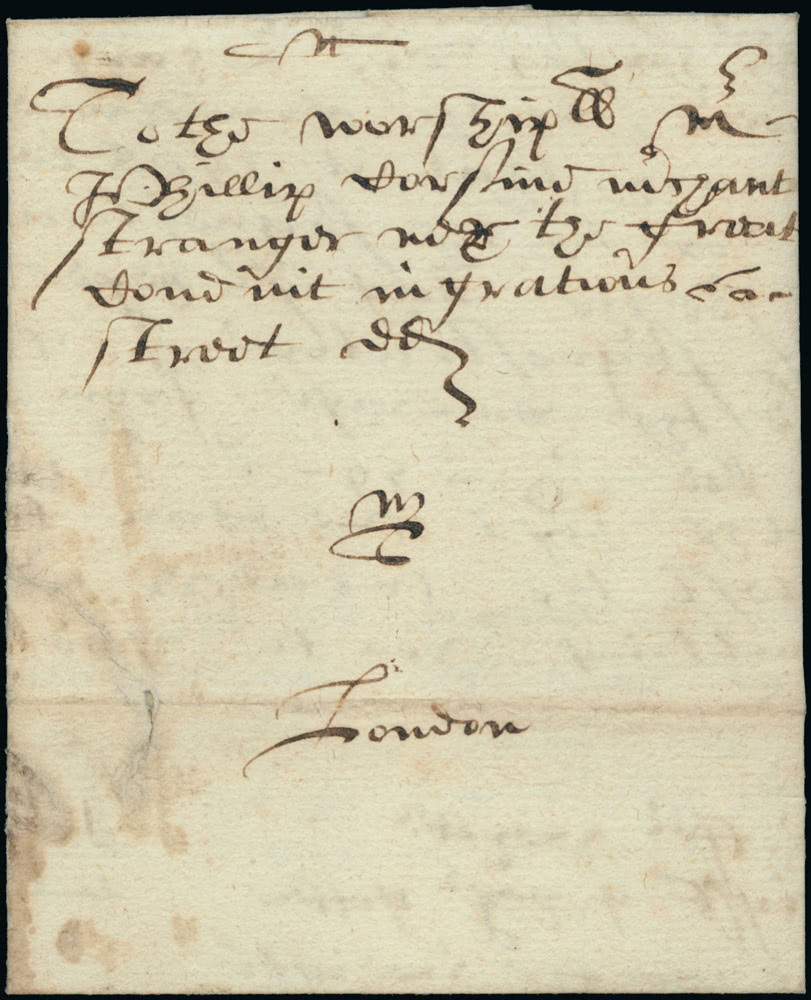 To the worshipll mr
Phillip Corsine mrchant
stranger nere the great
Conduit in gratious
street dd
London